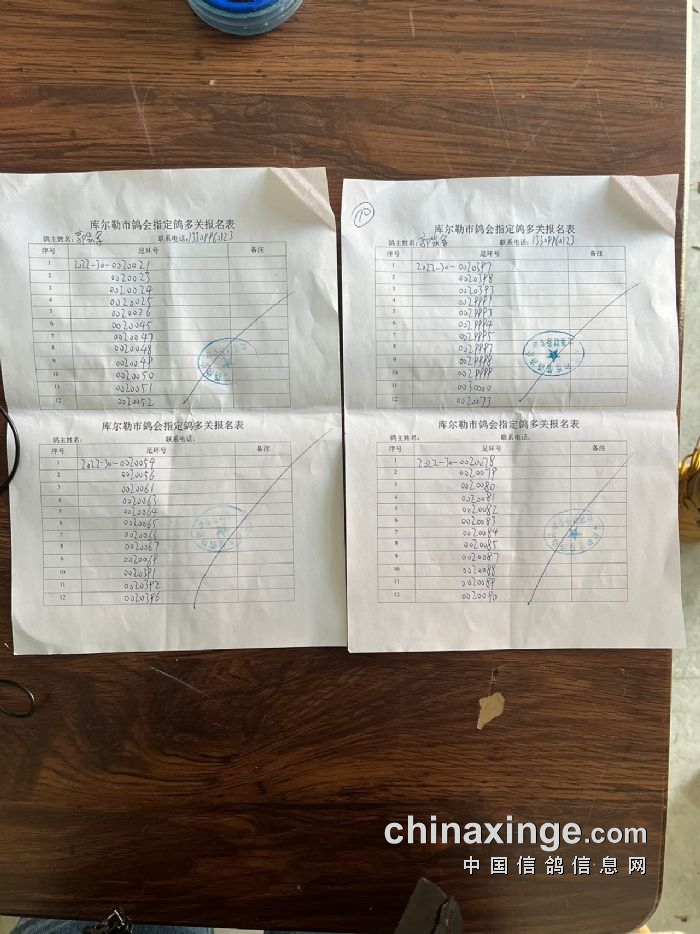 库尔勒市鸽会指定鸽多关报名表
鸽主姓名: 联系电话:13309960123
序号 足环号 备注
1 2022-30-0020021
2 0020023
3 0020024
4 0020025
5 0020026
6 0020045
7 0020047
8 0020048
9 0020049
10 0020050
11 0020051
12 0020052
库尔勒市鸽会指定鸽多关报名表
鸽主姓名: 联系电话:
序号 足环号 备注
1 2022-30-0020054
2 0020056
3 0020061
4 0020063
5 0020064
6 0020065
7 0020066
8 0020067
9 0020069
10 0020391
11 0020392
12 0020396
⑩
库尔勒市鸽会指定鸽多关报名表
鸽主姓名: 联系电话:13309960123
序号 足环号 备注
1 2022-30-0020397
2 0020398
3 0020393
4 0029991
5 0029993
6 0029994
7 0029995
8 0029997
9 0029998
10 0029999
11 0030000
12 0020073
库尔勒市鸽会指定鸽多关报名表
鸽主姓名: 联系电话:
序号 足环号 备注
1 2022-30-0020078
2 0020079
3 0020080
4 0020081
5 0020082
6 0020083
7 0020084
8 0020085
9 0020087
10 0020088
11 0020089
12 0020090
chinaxinge.com
中国信鸽信息网